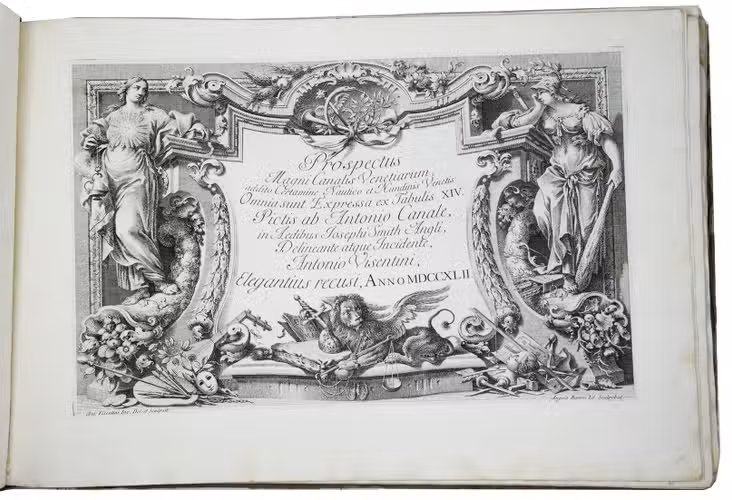 Prospectus
Magni Canalis Venetiarum,
addito Certamine Nautico et Nundinis Venetis:
Omnia sunt Expressa ex Tabulis XIV.
Pictis ab Antonio Canale,
in Aedibus Josephi Smith Angli,
Delineante atque Incidente,
Antonio Visentini,
Elegantius recusi, ANNO MDCCXLII
Ant. Visentini Inv. Del. et Sculpsit
Angela Baroni Lit. Sculpebat